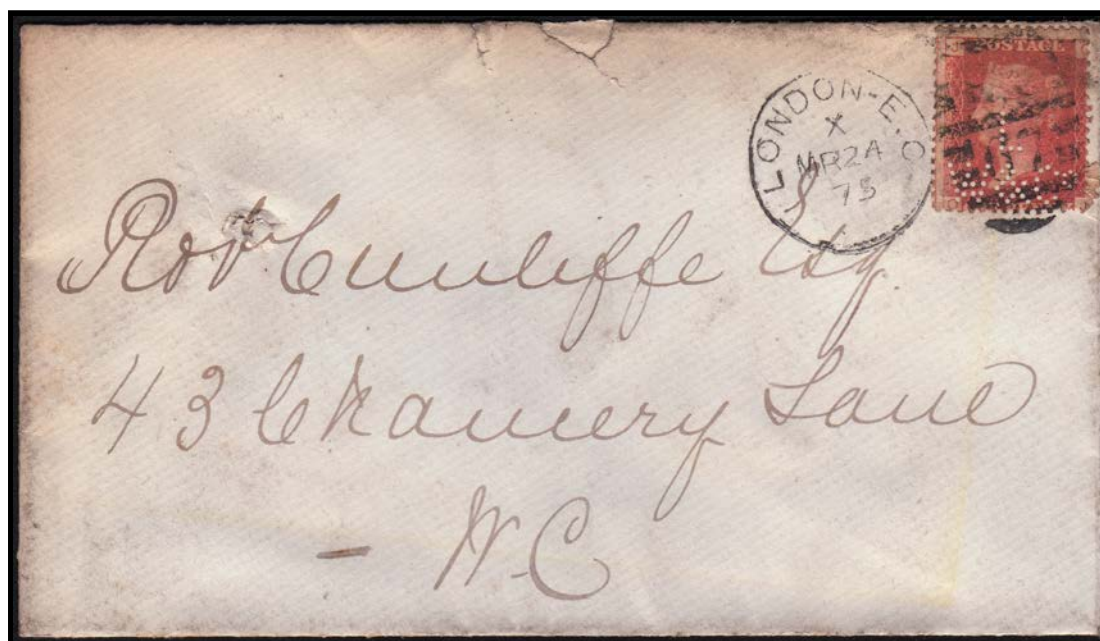 POSTAGE
LONDON-E.C
X
MR 24
75
Robt Cunliffe Esq
43 Chancery Lane
- W.C